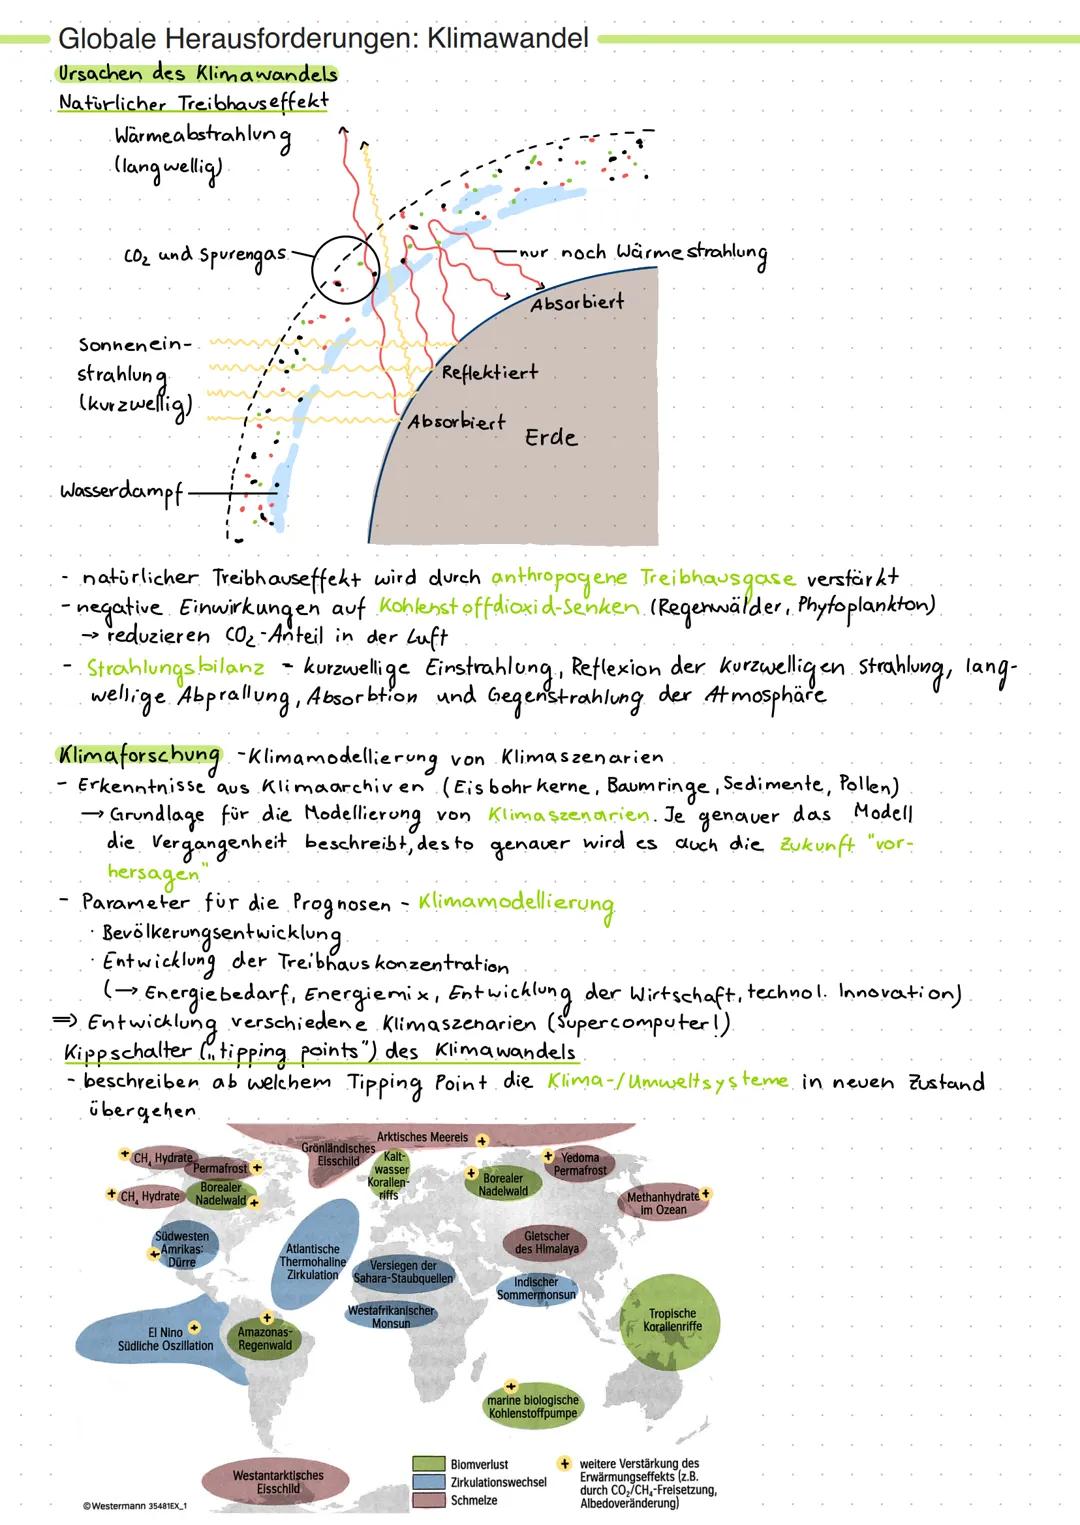 Globale Herausforderungen: Klimawandel
Ursachen des Klimawandels
Natürlicher Treibhauseffekt
Wärmeabstrahlung
(langwellig)
CO₂ und Spurengas
nur noch Wärmestrahlung
Absorbiert
Sonnenein-
strahlung
(kurzwellig)
Reflektiert
Absorbiert
Erde
Wasserdampf
- natürlicher Treibhauseffekt wird durch anthropogene Treibhausgase verstärkt
- negative Einwirkungen auf Kohlenstoffdioxid-Senken (Regenwälder, Phytoplankton)
→ reduzieren CO₂-Anteil in der Luft
- Strahlungsbilanz - kurzwellige Einstrahlung, Reflexion der kurzwelligen Strahlung, lang-
wellige Abprallung, Absorbtion und Gegenstrahlung der Atmosphäre
Klimaforschung - Klimamodellierung von Klimaszenarien
- Erkenntnisse aus Klimaarchiven (Eisbohrkerne, Baumringe, Sedimente, Pollen)
→ Grundlage für die Modellierung von Klimaszenarien. Je genauer das Modell
die Vergangenheit beschreibt, desto genauer wird es auch die Zukunft "vor-
hersagen"
- Parameter für die Prognosen - Klimamodellierung
· Bevölkerungsentwicklung
· Entwicklung der Treibhauskonzentration
(→ Energiebedarf, Energiemix, Entwicklung der Wirtschaft, technol. Innovation)
⇒ Entwicklung verschiedene Klimaszenarien (Supercomputer!)
Kippschalter („tipping points") des Klimawandels
- beschreiben ab welchem Tipping Point die Klima-/Umweltsysteme in neuen Zustand
übergehen
Arktisches Meereis +
Grönländisches
Eisschild
+ CH₄ Hydrate
Permafrost +
Kalt-
wasser
Korallen-
riffs
+ Yedoma
Permafrost
+ CH₄ Hydrate
Borealer
Nadelwald +
+ Borealer
Nadelwald
Methanhydrate +
im Ozean
Südwesten
+ Amrikas:
Dürre
Atlantische
Thermohaline
Zirkulation
Versiegen der
Sahara-Staubquellen
Gletscher
des Himalaya
Indischer
Sommermonsun
Westafrikanischer
Monsun
Tropische
Korallenriffe
El Nino +
Südliche Oszillation
+
Amazonas-
Regenwald
+
marine biologische
Kohlenstoffpumpe
Westantarktisches
Eisschild
Biomverlust
Zirkulationswechsel
Schmelze
+ weitere Verstärkung des
Erwärmungseffekts (z.B.
durch CO₂/CH₄-Freisetzung,
Albedoveränderung)
©Westermann 35481EX_1